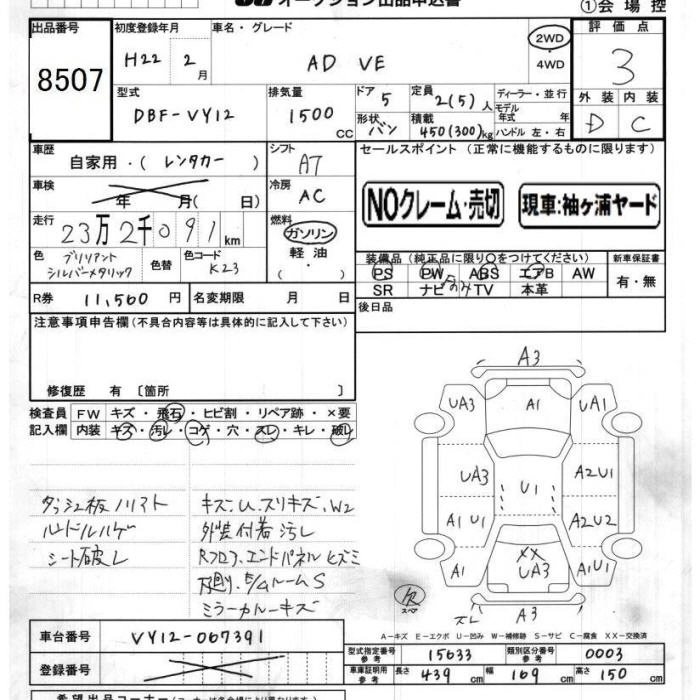 オークション出品申込書
①会場控
出品番号
8507
初度登録年月
H22 2月
車名・グレード
AD VE
2WD
・4WD
評価点
3
外装 内装
D C
型式
DBF-VY12
排気量
1500 CC
ドア 5
形状 バン
定員 2(5)人
積載 450(300)kg
ディーラー・並行
モデル年式 年式
ハンドル 左・右
車歴
自家用・(レンタカー)
シフト
AT
セールスポイント (正常に機能するものに限ります)
NOクレーム・売切
現車:袖ヶ浦ヤード
車検
年 月( 日)
冷房
AC
走行
23万2千091km
燃料
ガソリン
軽油
・( )
色 ブリリアントシルバーメタリック
色替
色コード K23
装備品(純正品に限り○をつけてください)
PS PW ABS エアB AW
SR ナビ TV 本革
新車保証書
有・無
R券 11,560円
名変期限 月 日
後日品
注意事項申告欄(不具合内容等は具体的に記入して下さい)
修復歴 有 〔箇所 〕
検査員記入欄
FW キズ・飛石・ヒビ割・リペア跡・×要
内装 キズ・汚レ・コゲ・穴・スレ・キレ・破レ
ダッシュ板ノリアト
シート破レ
キズ、U、スリキズ、W2
外装付着汚レ
Rフロア、エンドパネルヒズミ
ミラーカルーキズ
A3
UA3 A1 UA1
UA3 U1 A2U1
A1U1 A2U2
A1 XX UA3 A1U1
欠 スペア
スレ A3
A=キズ E=エクボ U=凹み W=補修跡 S=サビ C=腐食 XX=交換済
車台番号
VY12-067391
登録番号
型式指定番号 参考 15633
類別区分番号 参考 0003
車庫証明用 参考
長さ 439cm 幅 169cm 高さ 150cm